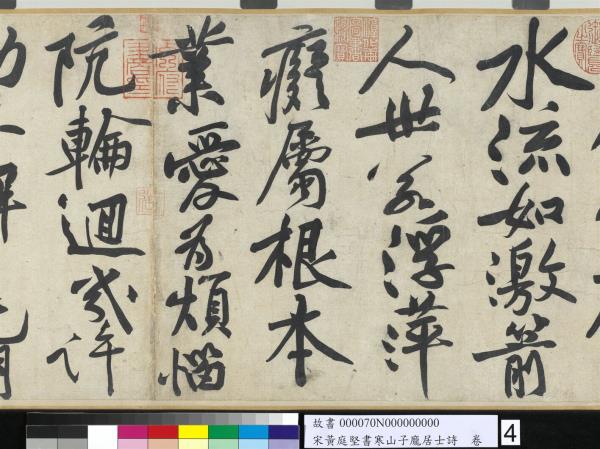 水流如激箭
人世若浮萍
癡屬根本
業愛為煩惱
阬輪迴幾許
故書 000070N000000000
宋黃庭堅書寒山子龐居士詩 卷
4